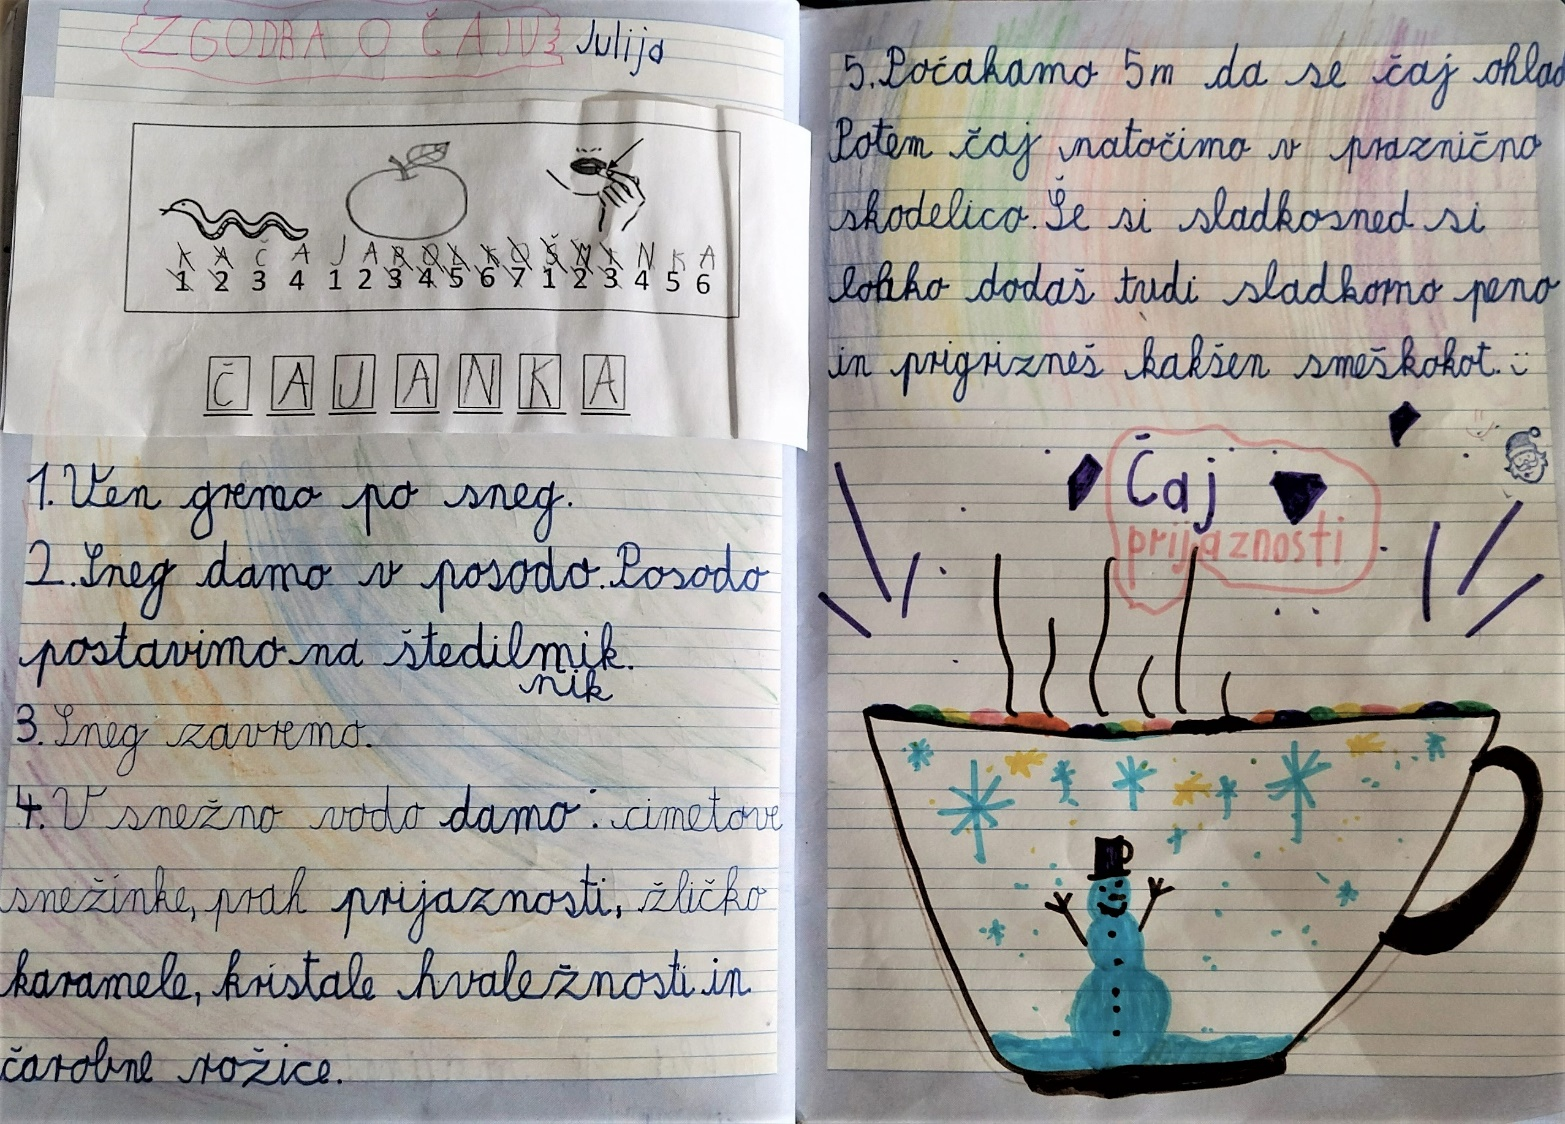 ZGODBA O ČAJU Julija
K A Č A J A B O L K O Š M I N K A
1 2 3 4 1 2 3 4 5 6 7 1 2 3 4 5 6
Č A J A N K A
1. Ven gremo po sneg.
2. Sneg damo v posodo. Posodo
postavimo na štedilmik.
nik
3. Sneg zavremo.
4. V snežno vodo damo: cimetove
snežinke, prah prijaznosti, žličko
karamele, kristale hvaležnosti in
čarobne rožice.
5. Počakamo 5m da se čaj ohlad
Potem čaj natočimo v praznično
skodelico. Še si sladkosned si
lohko dodaš tudi sladkorno peno
in prigrizneš kakšen smeškokot. :)
Čaj
prijaznosti